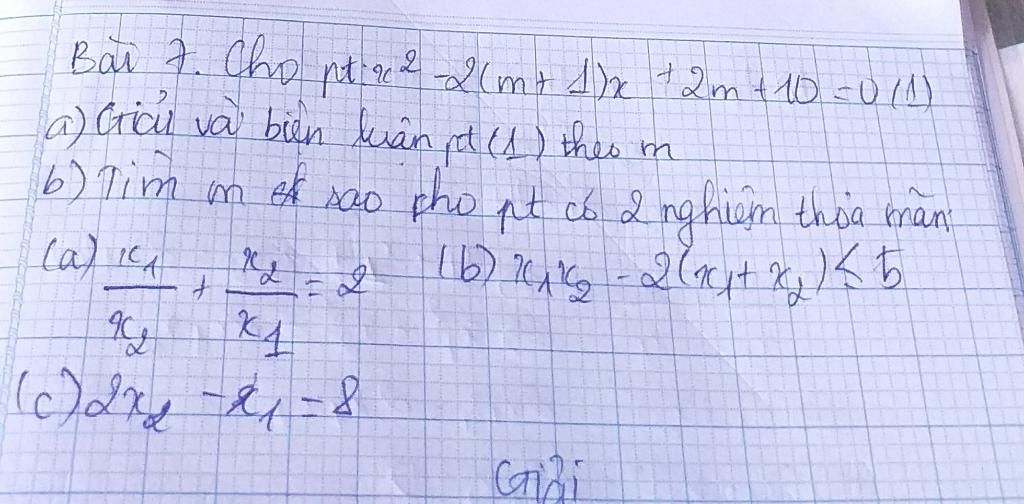 Bài 7. Cho pt: x² - 2(m + 1)x + 2m + 10 = 0 (1)
a) Giải và biện luận pt (1) theo m
b) Tìm m sao cho pt có 2 nghiệm thỏa mãn
(a) x₁/x₂ + x₂/x₁ = 2 (b) x₁x₂ - 2(x₁ + x₂) ≤ 5
(c) 2x₂ - x₁ = 8
Giải